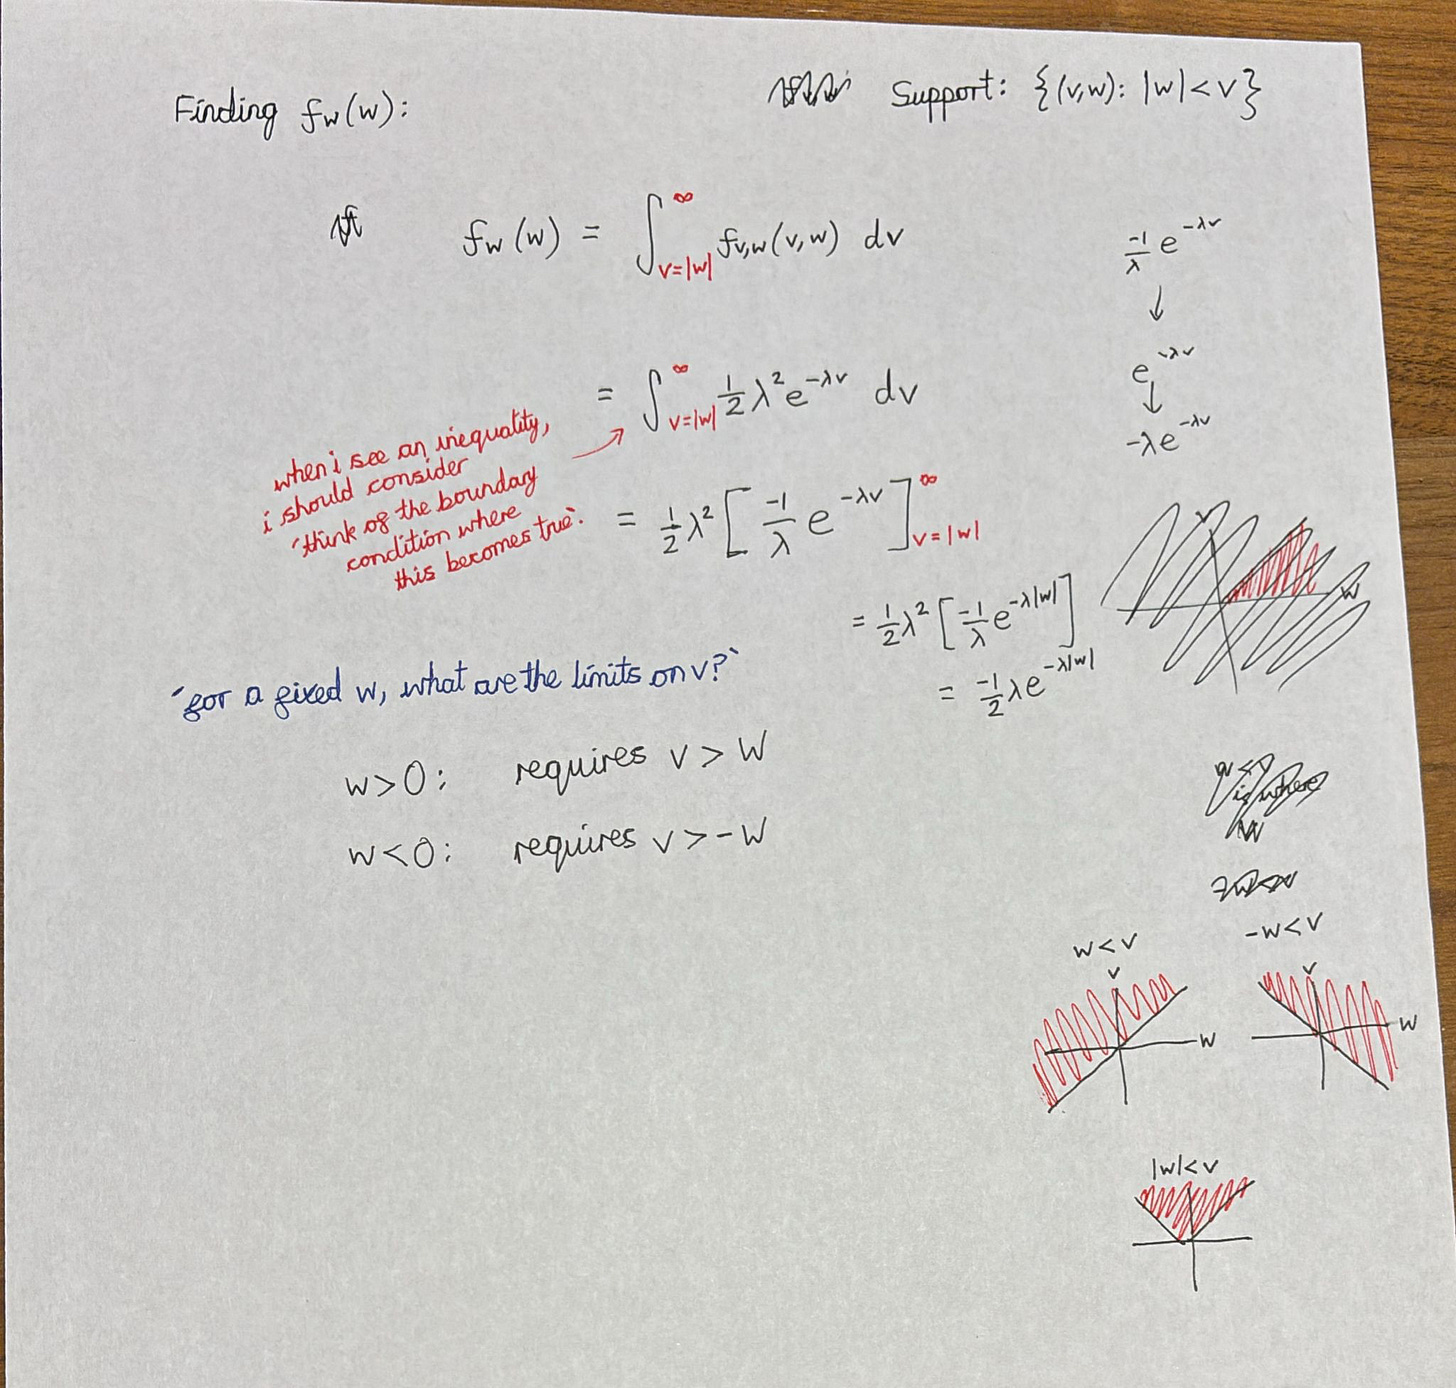 Finding f_W(w):
Support: {(v,w): |w| < v}
f_W(w) = ∫_{v=|w|}^{∞} f_{V,W}(v,w) dv
= ∫_{v=|w|}^{∞} 1/2 λ² e^{-λv} dv
when i see an inequality,
i should consider
'think of the boundary
condition where
this becomes true'.
= 1/2 λ² [ -1/λ e^{-λv} ]_{v=|w|}^{∞}
= 1/2 λ² [ -1/λ e^{-λ|w|} ]
= -1/2 λe^{-λ|w|}
'for a fixed w, what are the limits on v?'
w > 0: requires v > w
w < 0: requires v > -w
-1/λ e^{-λv}
↓
e^{-λv}
↓
-λe^{-λv}
v
w
w < v
v
w
-w < v
v
w
|w| < v